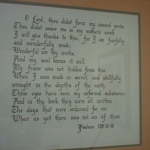 O Lord, thou didst form my inward parts
Thou didst weave me in my mothers womb
I will give thanks to thee, for I am fearfully
and wonderfully made.
Wonderful are thy works,
And my soul knows it well.
My frame was not hidden from thee,
When I was made in secret, and skillfully
wrought in the depths of the earth.
Thine eyes have seen my unformed substance
And in thy book they were all written
The days that were ordained for me,
When as yet there was not one of them.
Psalms 139:13-16